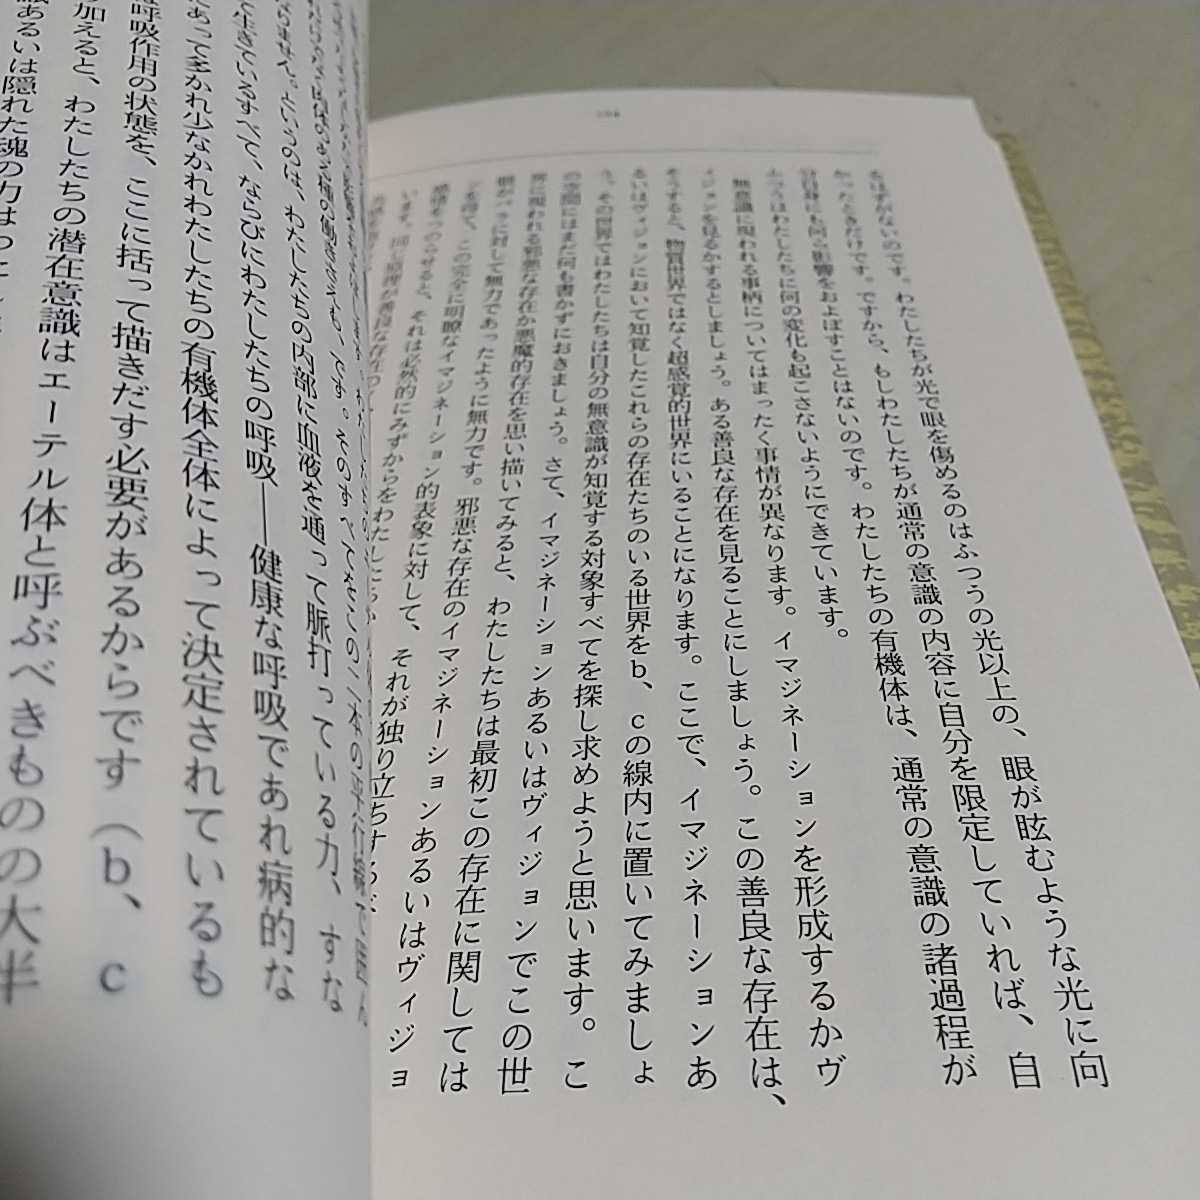 るはずがないのです。わたしたちが光で眼を傷めるのはふつうの光以上の、眼が眩むような光に向
かったときだけです。ですから、もしわたしたちが通常の意識の内容に自分を限定していれば、自
分自身にも何ら影響をおよぼすことはないのです。わたしたちの有機体は、通常の意識の諸過程が
ふつうはわたしたちに何の変化も起こさないようにできています。
無意識に現われる事柄についてはまったく事情が異なります。イマジネーションを形成するかヴ
ィジョンを見るかするとしましょう。ある善良な存在を見ることにしましょう。この善良な存在は、
そうすると、物質世界ではなく超感覚的世界にいることになります。ここで、イマジネーションあ
るいはヴィジョンにおいて知覚したこれらの存在たちのいる世界をb、cの線内に置いてみましょ
う。その世界ではわたしたちは自分の無意識が知覚する対象すべてを探し求めようと思います。こ
の空間にはまだ何も書かずにおきましょう。さて、イマジネーションあるいはヴィジョンでこの世
界に現われる邪悪な存在か悪魔的存在を思い描いてみると、わたしたちは最初この存在に関しては
眼がバラに対して無力であったように無力です。邪悪な存在のイマジネーションあるいはヴィジョ
ンを得て、この完全に明瞭なイマジネーション的表象に対して、それが独り立ちするべ
感情をつのらせると、それは必然的にみずからをわたしたちか
います。同じ原理が善良な存在の
というのは、わたしたちの内部に血液を通って脈打っている力、すな
生きているすべて、ならびにわたしたちの呼吸――健康な呼吸であれ病的な
あって多かれ少なかれわたしたちの有機体全体によって決定されているも
呼吸作用の状態を、ここに括って描きだす必要があるからです（b、c
加えると、わたしたちの潜在意識はエーテル体と呼ぶべきものの大半
あるいは隠れた魂の力は